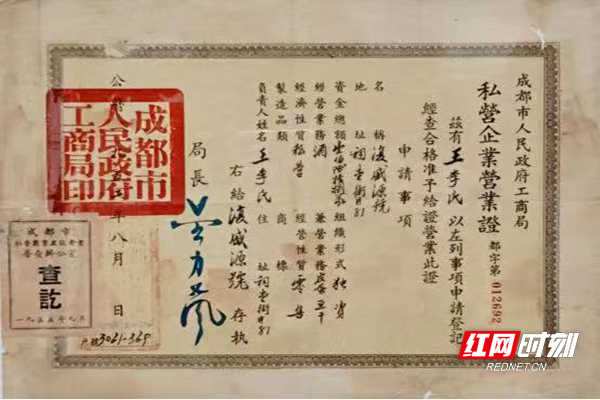 成都市人民政府工商局
私營企業營業證 都字第012692
兹有王李氏以左列事項申請登記
經查合格准予給證營業此證
申請事項
名稱 復盛源號
地址 祠堂街#81
資金總額 組織形式 独資
經營業務 酒 兼營業務
經濟性質 私营 經營性質 零售
製造品類 商標
負責人姓名 王李氏 住址 祠堂街#81
右給 復盛源號 存執
局長
公 八月 日
成都市
人民政府
工商局印
成都市
查訖
一九五五年九月
3061-369
红网时刻
REDNET.CN